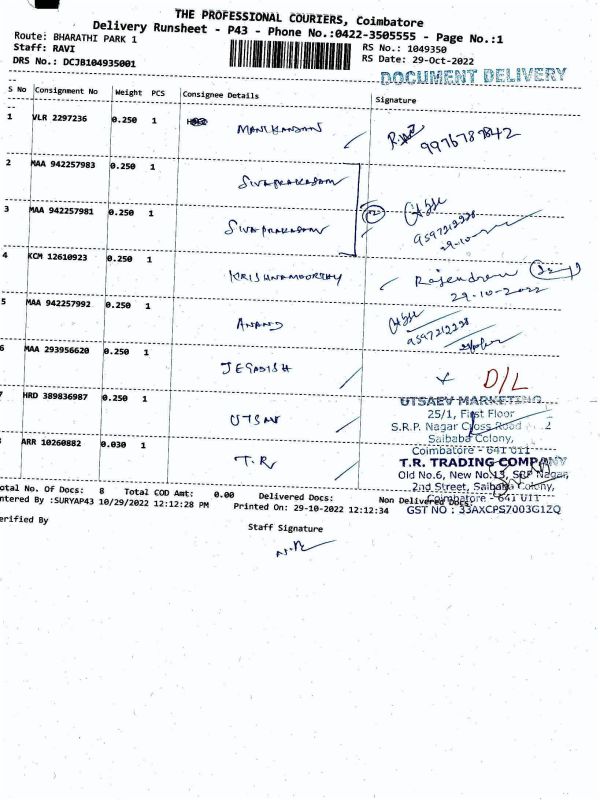 THE PROFESSIONAL COURIERS, Coimbatore
Delivery Runsheet - P43 - Phone No.:0422-3505555 - Page No.:1
Route: BHARATHI PARK 1
RS No.: 1049350
Staff: RAVI
RS Date: 29-Oct-2022
DRS No.: DCJB104935001
DOCUMENT DELIVERY
S No Consignment No Weight PCS Consignee Details Signature
1 VLR 2297236 0.250 1 MANIKANDAN 9976787842
2 MAA 942257983 0.250 1 SIVAPRAKASAM
3 MAA 942257981 0.250 1 SIVAPRAKASAM 9597212228
29-10-
4 KCM 12610923 0.250 1 KRISHNAMOORTHY Rajendran
29-10-2022
5 MAA 942257992 0.250 1 ANAND 9597212228
6 MAA 293956620 0.250 1 JEGADISH D/L
HRD 389836987 0.250 1 UTSAV
UTSAEV MARKETING
25/1, First Floor
S.R.P. Nagar Cross Road 2
Saibaba Colony,
Coimbatore - 641 011
ARR 10260882 0.030 1 T.R
T.R. TRADING COMPANY
Old No.6, New No.13, SRP Nagar,
2nd Street, Saibaba Colony,
Coimbatore - 641 011
GST NO : 33AXCPS7003G1ZQ
otal No. Of Docs: 8 Total COD Amt: 0.00 Delivered Docs: Non Delivered Docs:
ntered By :SURYAP43 10/29/2022 12:12:28 PM Printed On: 29-10-2022 12:12:34
erified By
Staff Signature